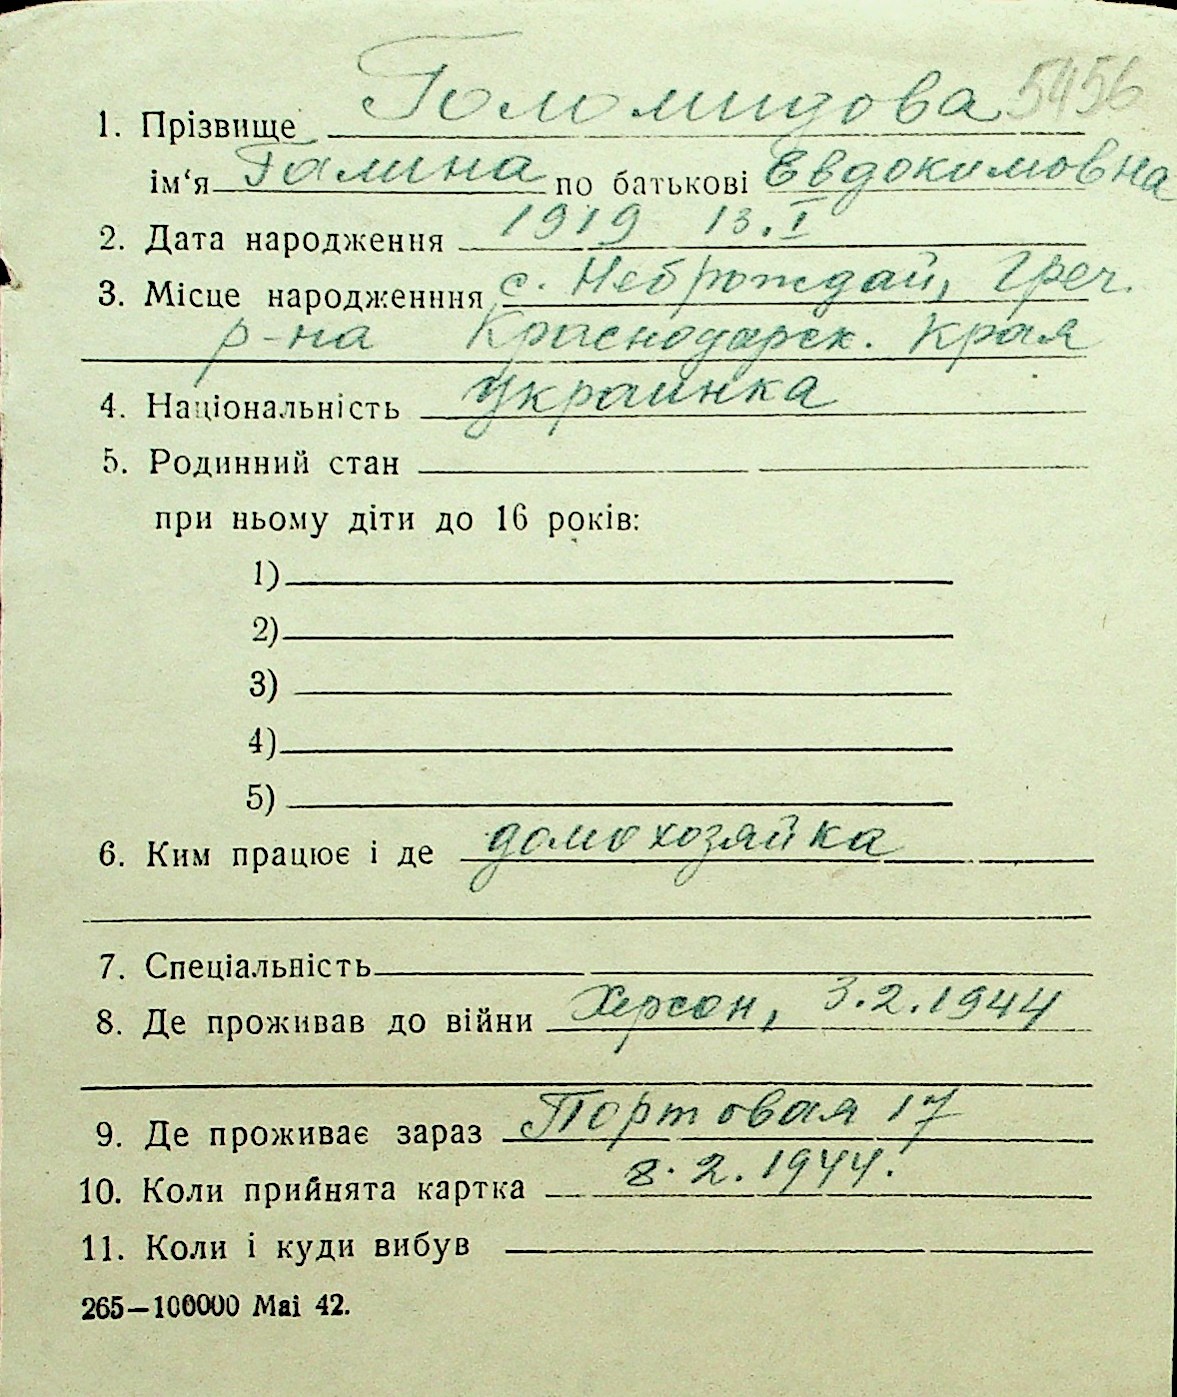 5456
1. Прізвище Голомидова
ім‘я Галина по батькові Евдокимовна
2. Дата народження 1919 13.I
3. Місце народженння с. Неброждай, Греч.
р-на Краснодарск. Края
4. Національність украинка
5. Родинний стан
при ньому діти до 16 років:
1)
2)
3)
4)
5)
6. Ким працює і де домохозяйка
7. Спеціальність
8. Де проживав до війни Херсон, 3.2.1944
9. Де проживає зараз Портовая 17
10. Коли прийнята картка 8.2.1944.
11. Коли і куди вибув
265—100000 Mai 42.